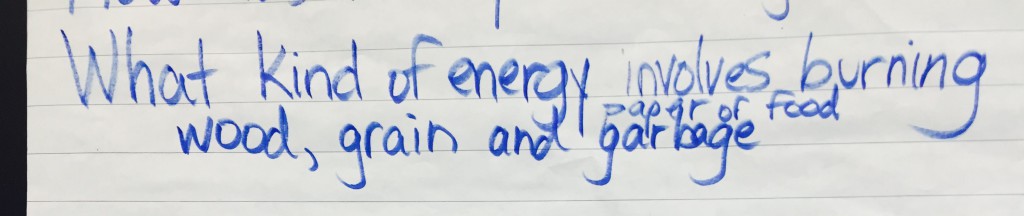 What kind of energy involves burning
paper or food
wood, grain and garbage